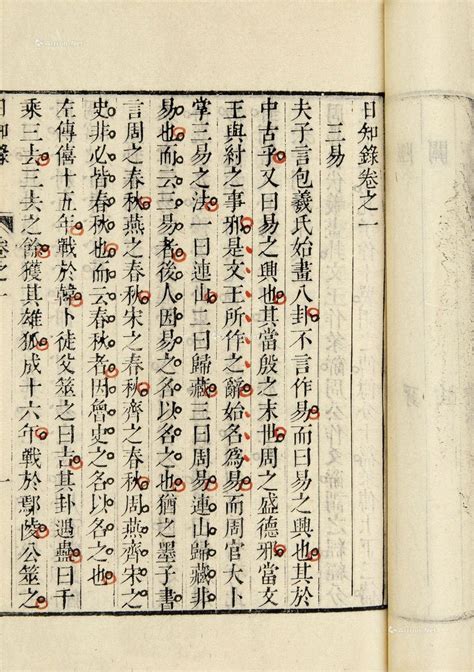 日知錄卷之一
三易
夫子言包羲氏始畫八卦不言作易而曰易之興也其於
中古乎又曰易之興也其當殷之末世周之盛德邪當文
王與紂之事邪是文王所作之辭始名為易而周官大卜
掌三易之法一曰連山二曰歸藏三曰周易連山歸藏非
易也而云三易者後人因易之名以名之也猶之墨子書
言周之春秋燕之春秋宋之春秋齊之春秋周燕齊宋之
史非必皆春秋也而云春秋者因魯史之名以名之也
左傳僖十五年戰於韓卜徒父筮之曰吉其卦遇蠱曰千
乘三去三去之餘獲其雄狐成十六年戰於鄢陵公筮之
日知錄
卷之一